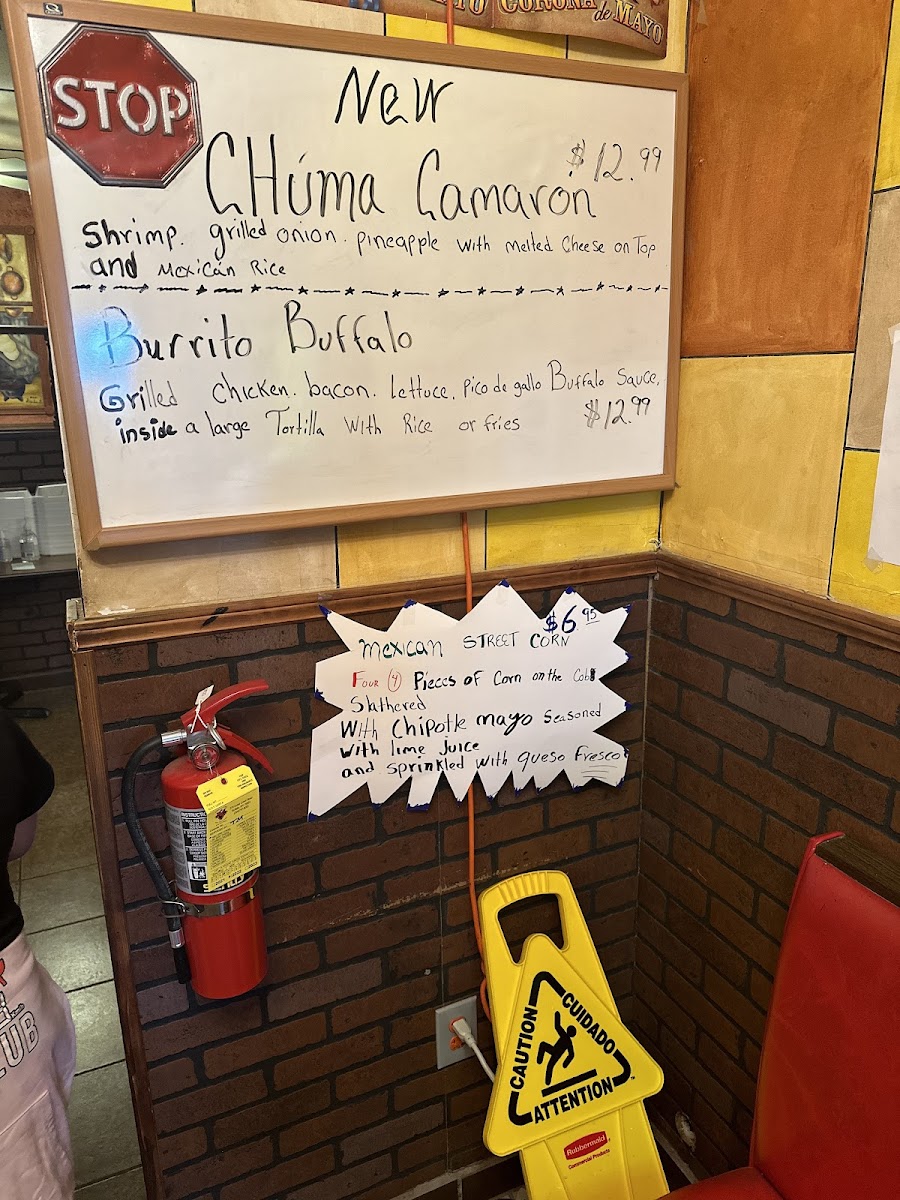 CORONA
de MAYO
STOP
New
CHúma Camarón
$12.99
Shrimp. grilled onion. pineapple with melted Cheese on Top
and Mexican Rice
Burrito Buffalo
Grilled Chicken. bacon. Lettuce. Pico de gallo Buffalo Sauce.
inside a large Tortilla With Rice or fries
$12.99
$6.95
Mexican STREET CORN
Four (4) Pieces of Corn on the Cob
Slathered
With Chipotle mayo Seasoned
with lime Juice
and sprinkled with queso Fresco
CAUTION
CUIDADO
ATTENTION
Rubbermaid
Commercial Products